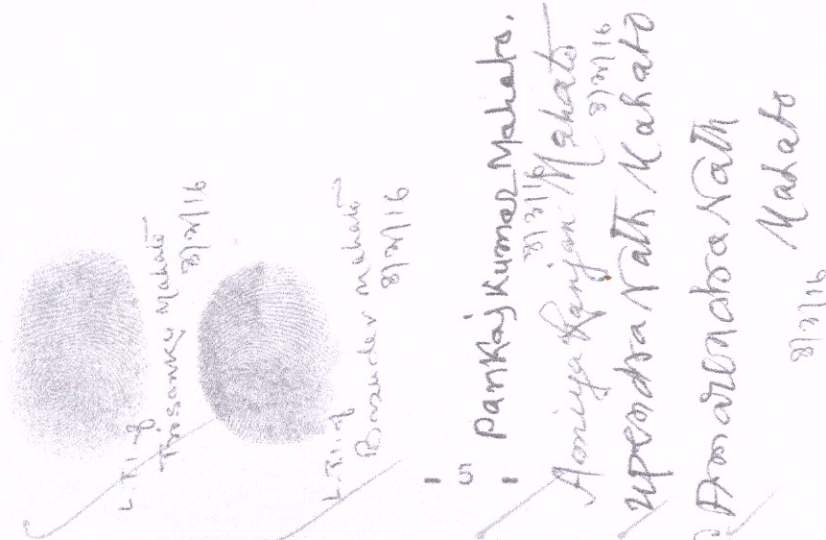 L.T.I. of
Trisanku Mahato
8/2/16
L.T.I. of
Basudev Mahato
8/2/16
- 5 -
Pankaj Kumar Mahato.
8/2/16
Amiya Ranjan Mahato
8/2/16
Upendra Nath Mahato
Amarendra Nath
Mahato
8/2/16